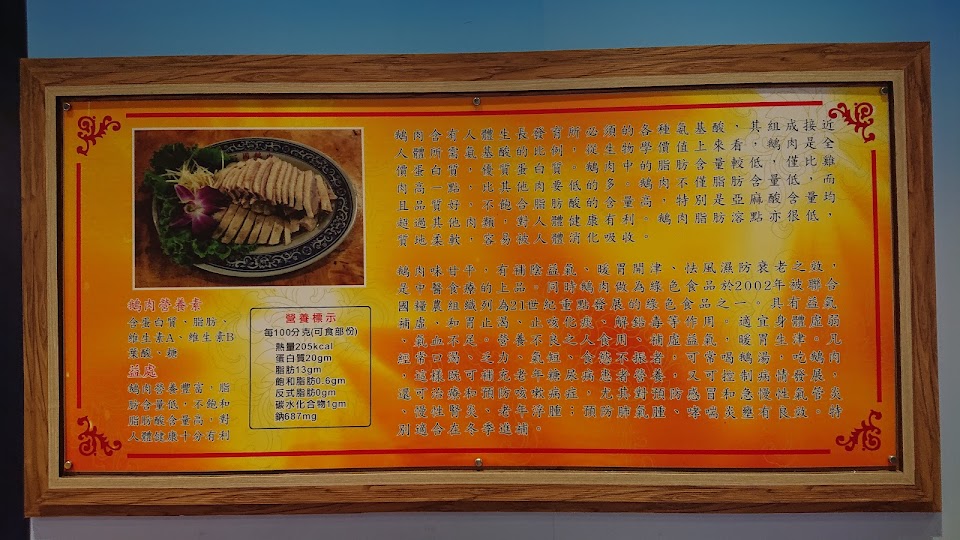 鵝肉含有人體生長發育所必須的各種氨基酸，其組成接近
人體所需氨基酸的比例，從生物學價值上來看，鵝肉是全
價蛋白質，優質蛋白質。鵝肉中的脂肪含量較低，僅比雞
肉高一點，比其他肉要低的多。鵝肉不僅脂肪含量低，而
且品質好，不飽合脂肪酸的含量高，特別是亞麻酸含量均
超過其他肉類，對人體健康有利。鵝肉脂肪溶點亦很低，
質地柔軟，容易被人體消化吸收。
鵝肉味甘平，有補陰益氣、暖胃開津、怯風濕防衰老之效，
是中醫食療的上品。同時鵝肉做為綠色食品於2002年被聯合
國糧農組織列為21世紀重點發展的綠色食品之一。具有益氣
補虛、和胃止渴、止咳化痰、解鉛毒等作用。適宜身體虛弱
、氣血不足。營養不良之人食用、補虛益氣，暖胃生津。凡
經常口渴、乏力、氣短、食慾不振者，可常喝鵝湯，吃鵝肉
，這樣既可補充老年糖尿病患者營養，又可控制病情發展，
還可治療和預防咳嗽病症，尤其對預防感冒和急慢性氣管炎
、慢性腎炎、老年浮腫；預防肺氣腫、哮喘炎壅有良效。特
別適合在冬季進補。
鵝肉營養素
含蛋白質、脂肪、
維生素A、維生素B
葉酸、糖
益處
鵝肉營養豐富，脂
肪含量低，不飽和
脂肪酸含量高，對
人體健康十分有利
營養標示
每100分克(可食部份)
熱量205kcal
蛋白質20gm
脂肪13gm
飽和脂肪0.6gm
反式脂肪0gm
碳水化合物1gm
鈉687mg